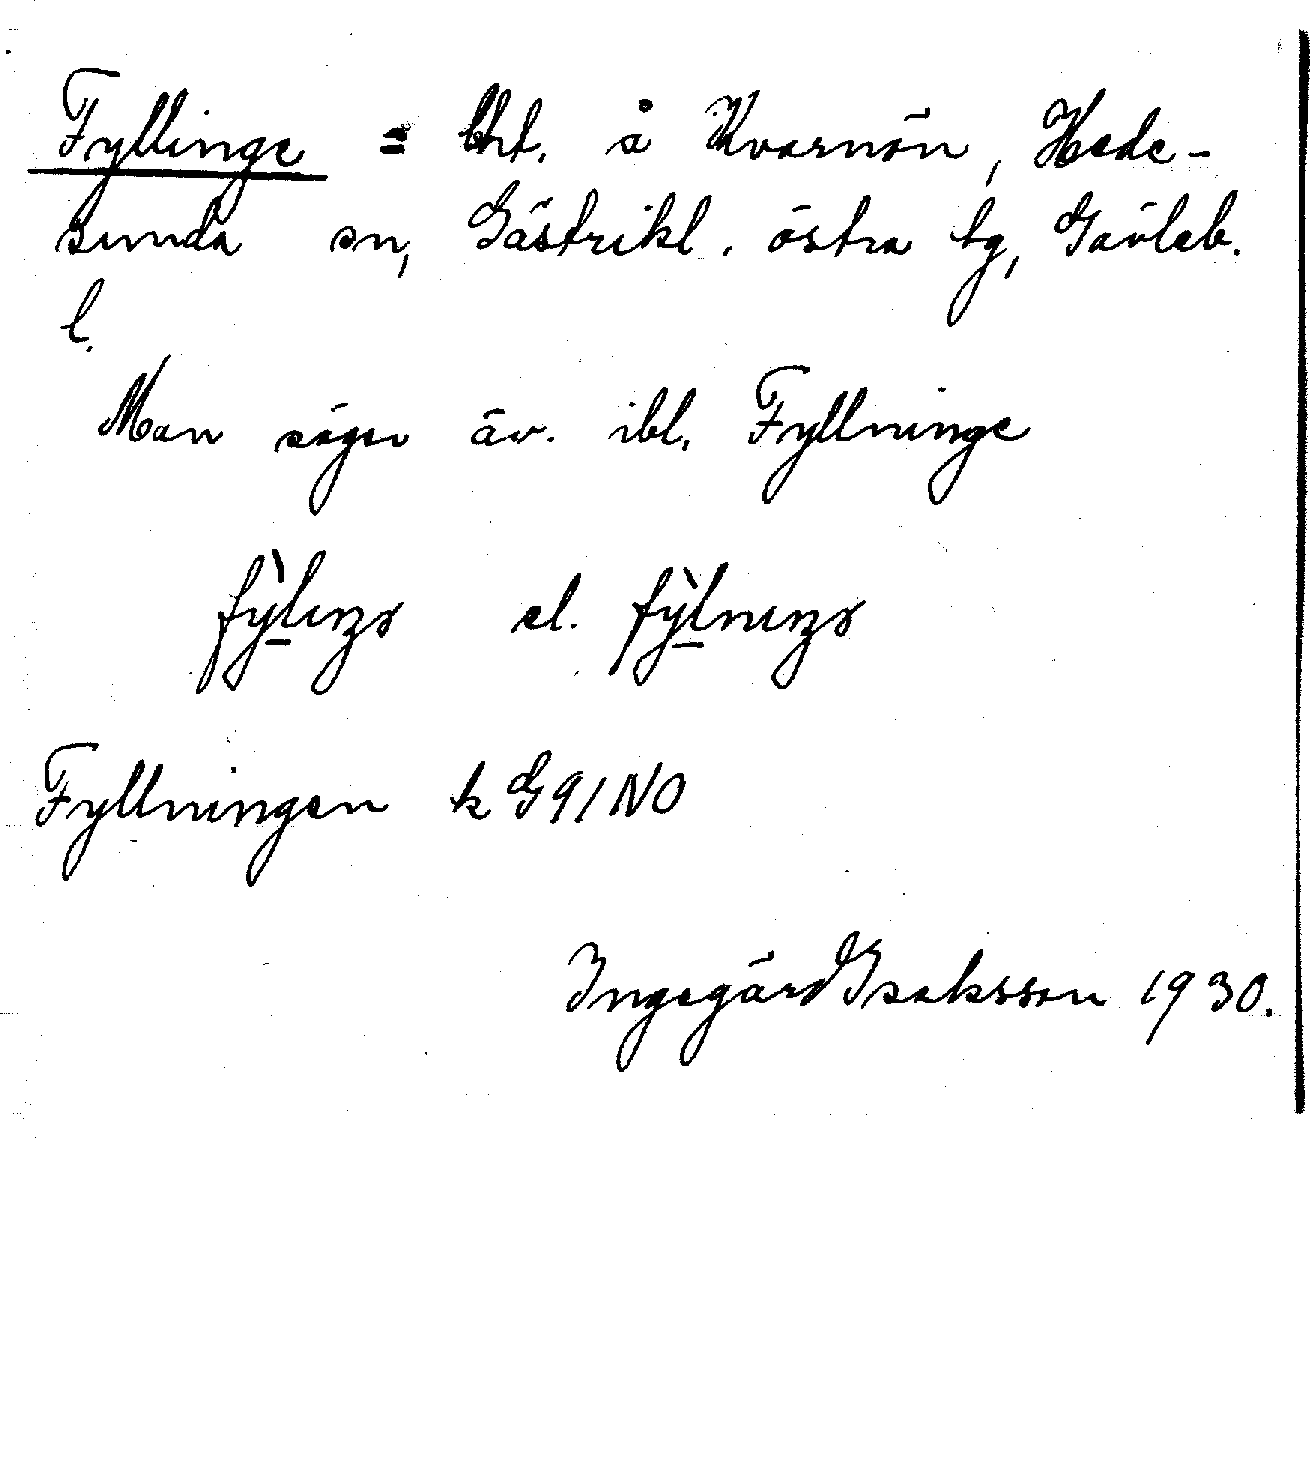 Fyllinge = lht. å Kvarnön, Hede-
sunda sn, Gästrikl. östra tg, Gävleb.
l.
Man säger äv. ibl. Fyllninge
el.
Fyllningen k G91NO
Ingegärd Isaksson 1930.